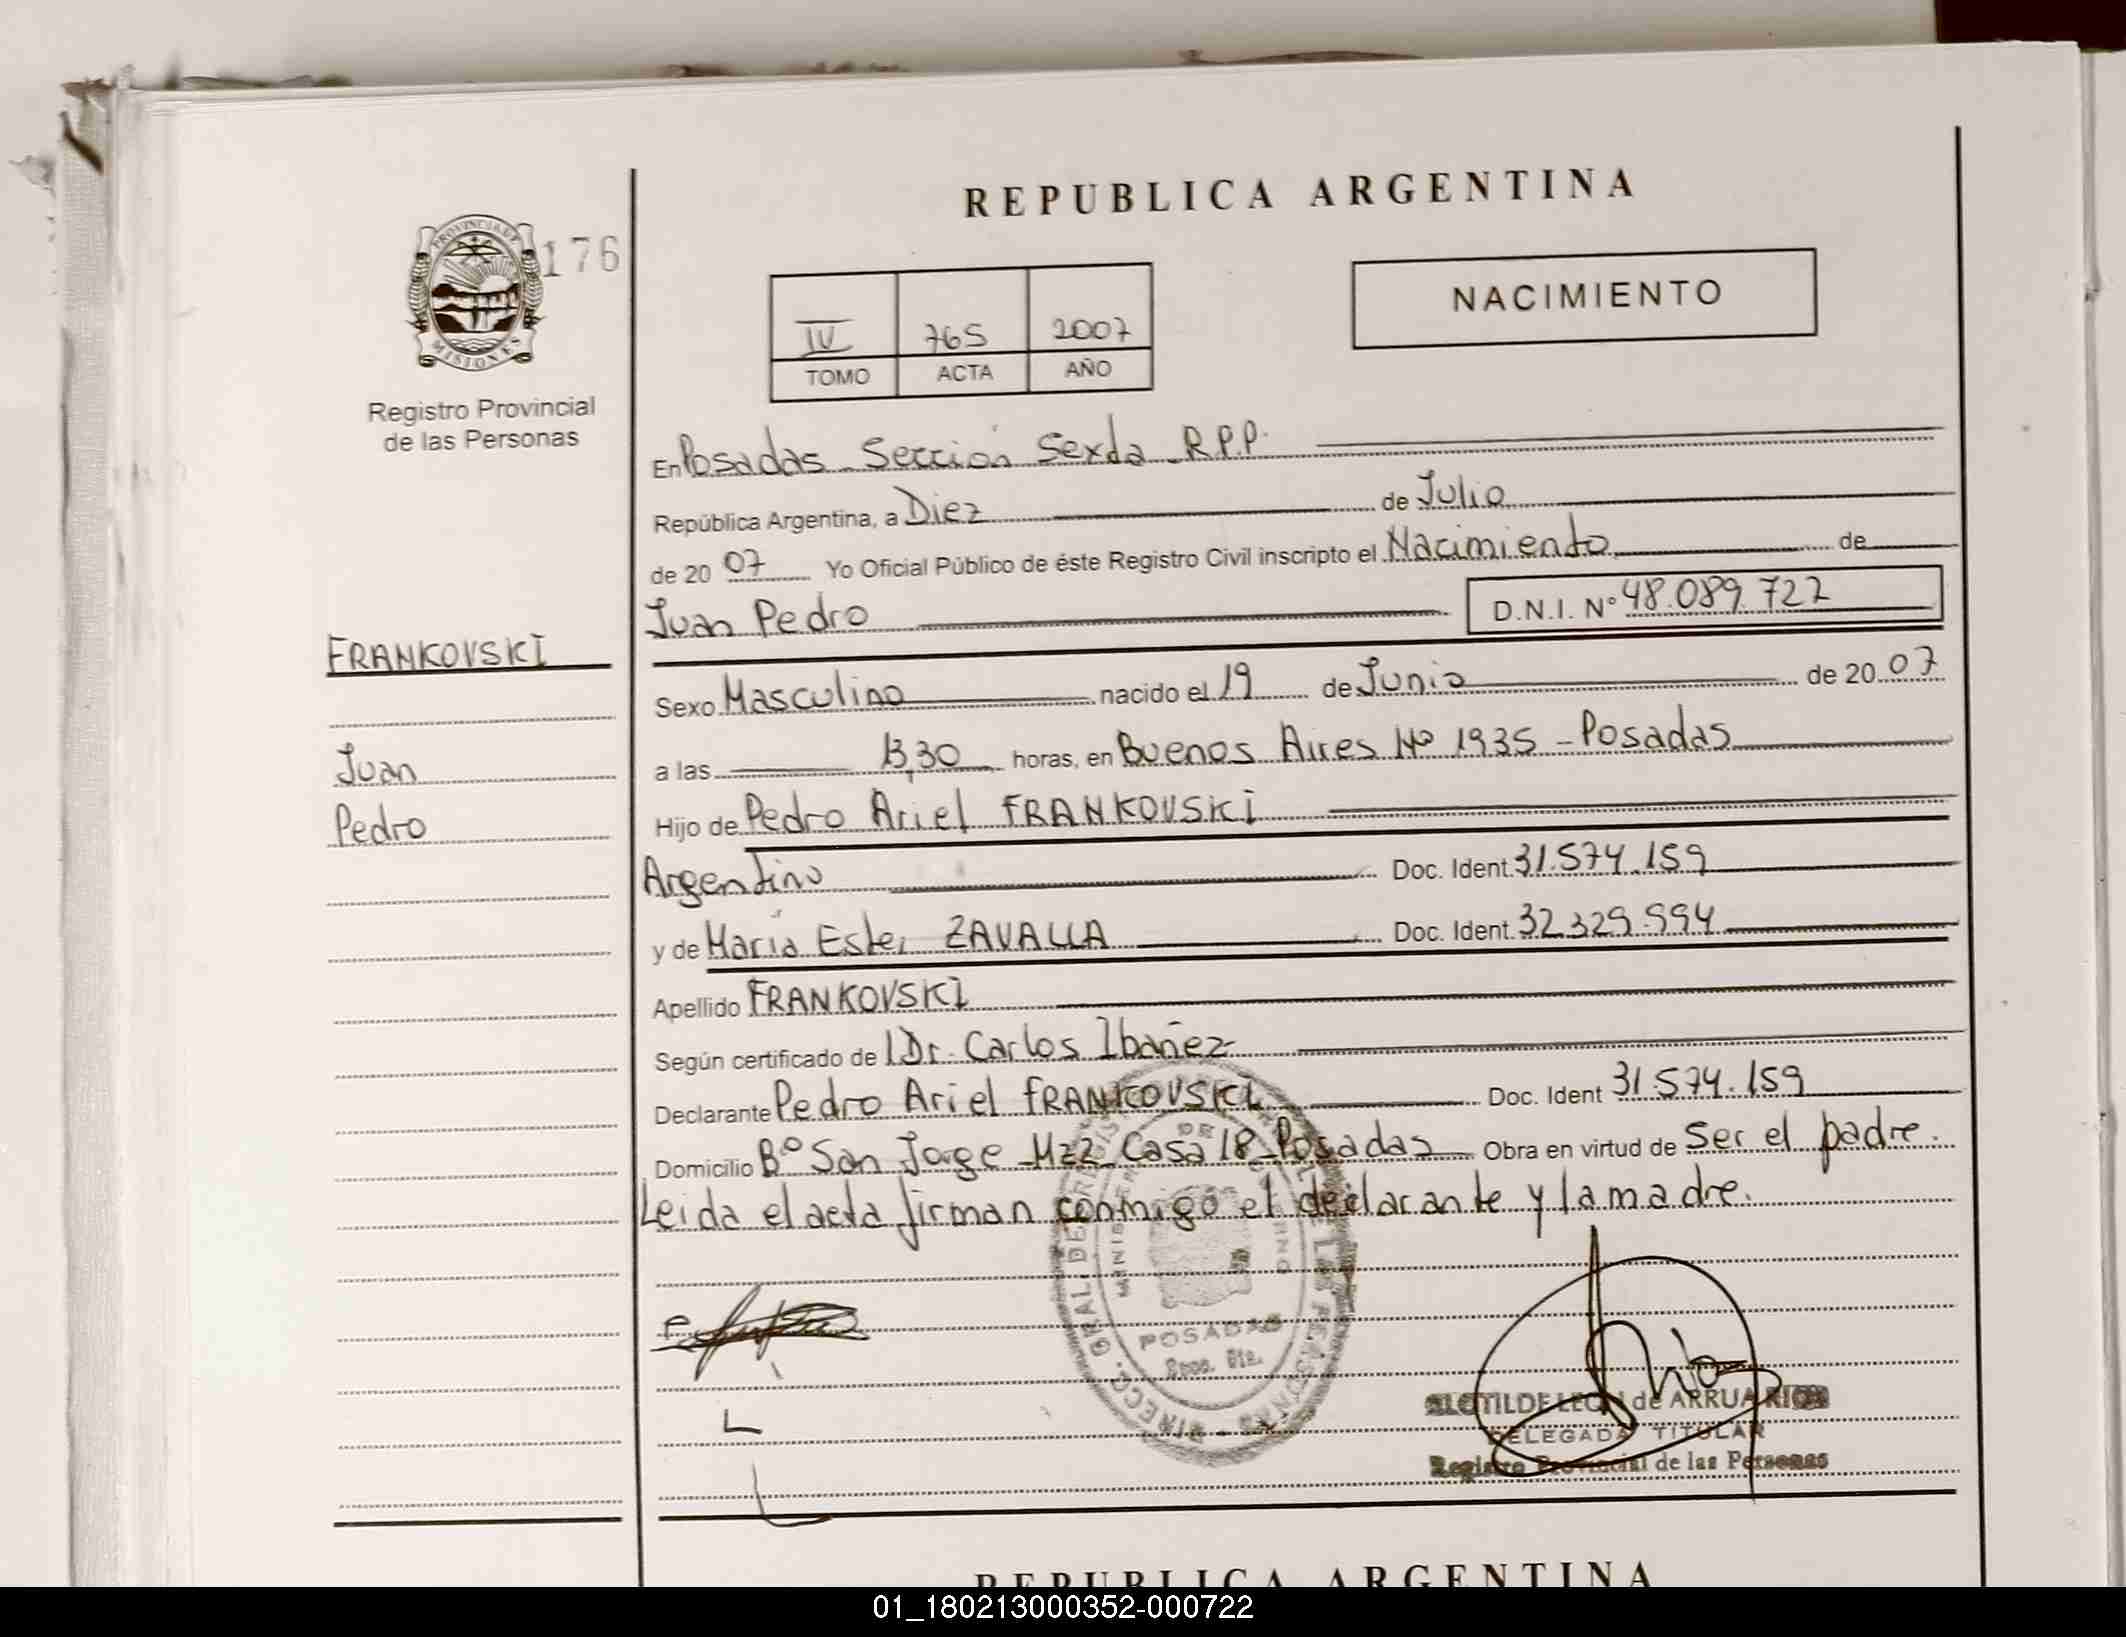 REPUBLICA ARGENTINA
PROVINCIA DE
MISIONES
176
Registro Provincial
de las Personas
IV 765 2007
TOMO ACTA AÑO
NACIMIENTO
En Posadas Sección Sexta R.P.P.
República Argentina, a Diez de Julio
de 20 07 Yo Oficial Público de éste Registro Civil inscripto el Nacimiento de
Juan Pedro D.N.I. Nº 48.089.722
FRANKOVSKI
Juan
Pedro
Sexo Masculino nacido el 19 de Junio de 20 07
a las 13,30 horas, en Buenos Aires Nº 1935 - Posadas
Hijo de Pedro Ariel FRANKOVSKI
Argentino Doc. Ident. 31.574.159
y de María Ester ZAVALLA Doc. Ident. 32.329.994
Apellido FRANKOVSKI
Según certificado de Dr. Carlos Ibañez
Declarante Pedro Ariel FRANKOVSKI Doc. Ident 31.574.159
Domicilio Bº San Jorge Mz2 Casa 18 Posadas Obra en virtud de Ser el padre.
Leida el acta firman conmigo el declarante y la madre.
POSADAS
CLOTILDE LEON de ARRUA RIOS
DELEGADA TITULAR
Registro Provincial de las Personas
REPUBLICA ARGENTINA
01_180213000352-000722